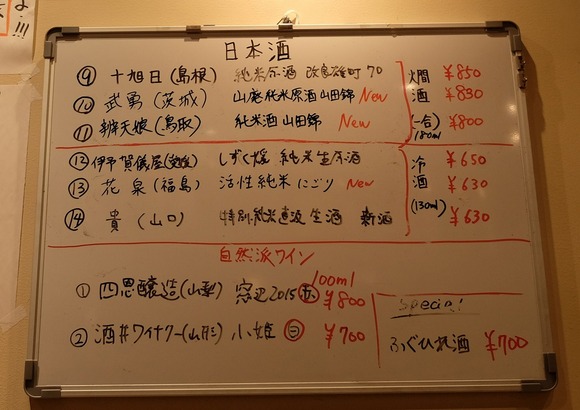 日本酒
⑨ 十旭日(島根) 純米原酒 改良雄町70 燗酒(一合)180ml ¥850
⑩ 武勇(茨城) 山廃純米原酒山田錦 New ¥830
⑪ 辨天娘(鳥取) 純米酒 山田錦 New ¥800
⑫ 伊予賀儀屋(愛媛) しずく媛 純米生原酒 冷酒(130ml) ¥650
⑬ 花泉(福島) 活性純米にごり New ¥630
⑭ 貴(山口) 特別純米直汲生酒 新酒 ¥630
自然派ワイン
100ml
① 四恩醸造(山梨) 窓辺2015 赤 ¥800
② 酒井ワイナリー(山形) 小姫 白 ¥700
Special
ふぐひれ酒 ¥700